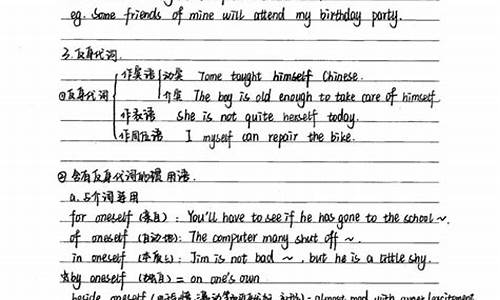 eg. Some friends of mine will attend my birthday party.
3. 反身代词.
作宾语 动宾 Tome taught himself Chinese.
①反身代词 介宾 The boy is old enough to take care of himself.
作表语 she is not quite herself today.
作同位语 I myself can repair the bike.
② 含有反身代词的惯用语.
a. 与介词连用
for oneself (亲自): You'll have to see if he has gone to the school ~.
of oneself (自动地): The computer many shut off ~.
in oneself (本质上): Jim is not bad ~, but he is a little shy.
by oneself = on one's own
beside oneself - almost mad with